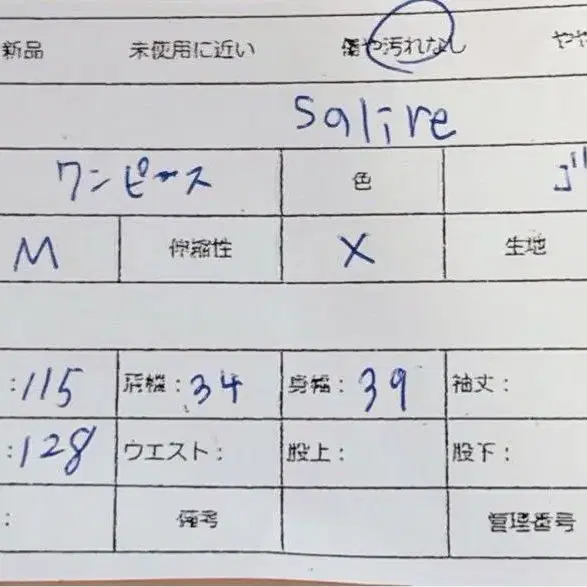 新品 未使用に近い 傷や汚れなし やや
salire
ワンピース 色
M 伸縮性 X 生地
:115 肩幅:34 身幅:39 袖丈:
:128 ウエスト: 股上: 股下:
: 備考 管理番号